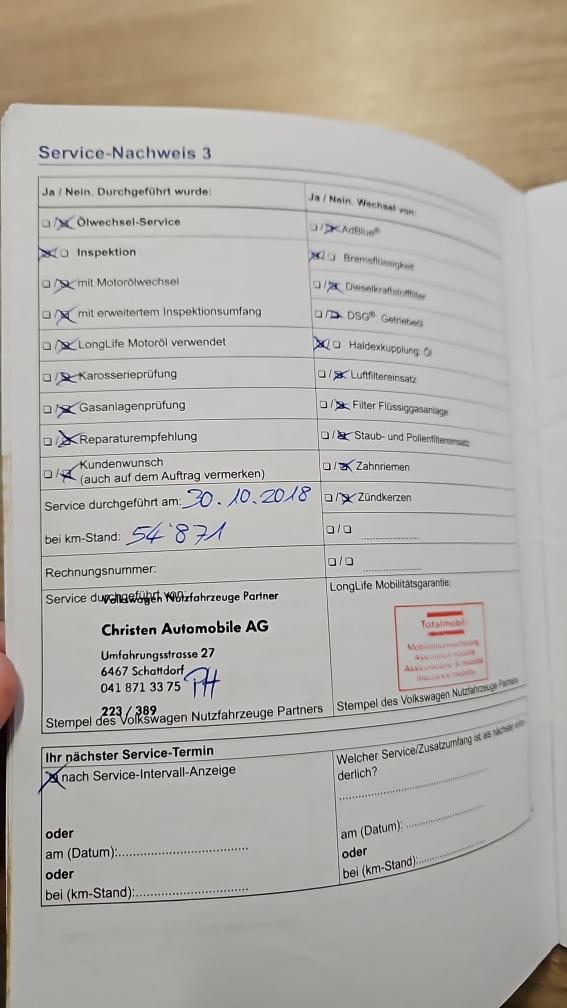 Service-Nachweis 3
Ja / Nein. Durchgeführt wurde:
Ölwechsel-Service
Inspektion
mit Motorölwechsel
mit erweitertem Inspektionsumfang
LongLife Motoröl verwendet
Karosserieprüfung
Gasanlagenprüfung
Reparaturempfehlung
Kundenwunsch
(auch auf dem Auftrag vermerken)
Service durchgeführt am: 30.10.2018
bei km-Stand: 54'871
Rechnungsnummer:
Service durchgeführt von:
Volkswagen Nutzfahrzeuge Partner
Christen Automobile AG
Umfahrungsstrasse 27
6467 Schattdorf
041 871 33 75
223 / 389
Stempel des Volkswagen Nutzfahrzeuge Partners
Ja / Nein. Wechsel von:
AdBlue®
Bremsflüssigkeit
Dieselkraftstofffilter
DSG®- Getriebeöl
Haldexkupplung: Öl
Luftfiltereinsatz
Filter Flüssiggasanlage
Staub- und Pollenfiltereinsatz
Zahnriemen
Zündkerzen
LongLife Mobilitätsgarantie:
Totalmobil!
Mobilitätsversicherung
Assurance mobilité
Assicurazione di mobilità
Insurance mobility
Stempel des Volkswagen Nutzfahrzeuge Partners
Ihr nächster Service-Termin
nach Service-Intervall-Anzeige
oder
am (Datum):
oder
bei (km-Stand):
Welcher Service/Zusatzumfang ist als nächster erfor-
derlich?
am (Datum):
oder
bei (km-Stand):